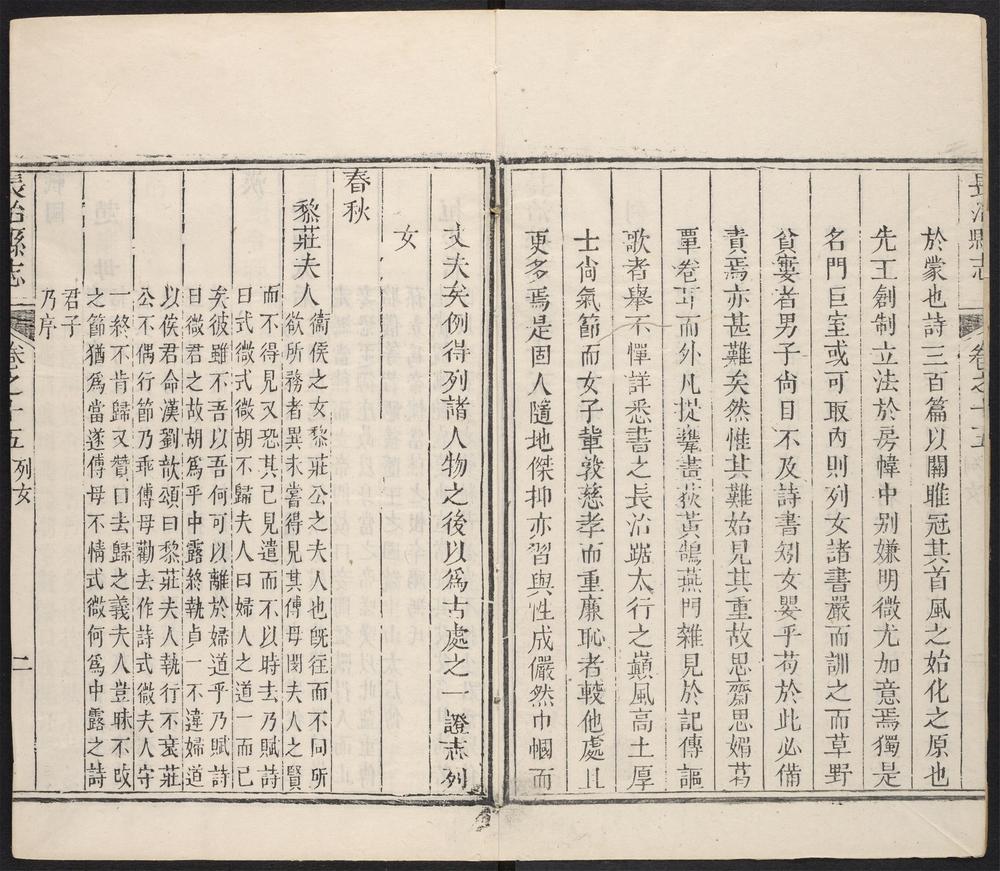 長治縣志
卷之十五
於蒙也詩三百篇以關雎冠其首風之始化之原也
先王創制立法於房幃中别嫌明微尤加意焉獨是
名門巨室或可取內則列女諸書嚴而訓之而草野
貧寠者男子尙目不及詩書矧女嬰乎苟於此必備
責焉亦甚難矣然惟其難始見其重故思齋思媚葛
覃卷耳而外凡提甕畫荻黃鵠燕門雜見於記傳謳
歌者舉不憚詳悉書之長治踞太行之巔風高土厚
士尙氣節而女子輩敦慈孝而重廉恥者較他處且
更多焉是固人隨地傑抑亦習與性成儼然巾幗而
丈夫矣例得列諸人物之後以爲古處之一證志列
女
春秋
黎莊夫人
衞侯之女黎莊公之夫人也旣往而不同所
欲所務者異未嘗得見其傅母閔夫人之賢
而不得見又恐其已見遣而不以時去乃賦詩
曰式微式微胡不歸夫人曰婦人之道一而已
矣彼雖不吾以吾何可以離於婦道乎乃賦詩
曰微君之故胡爲乎中露終執貞一不違婦道
以俟君命漢劉歆頌曰黎莊夫人執行不衰莊
公不偶行節乃乖傅母勸去作詩式微夫人守
一終不肯歸又贊曰去歸之義夫人豈昧不改
之節猶爲當遂傅母不情式微何爲中露之詩
君子
乃序
長治縣志
卷之十五
列女
二